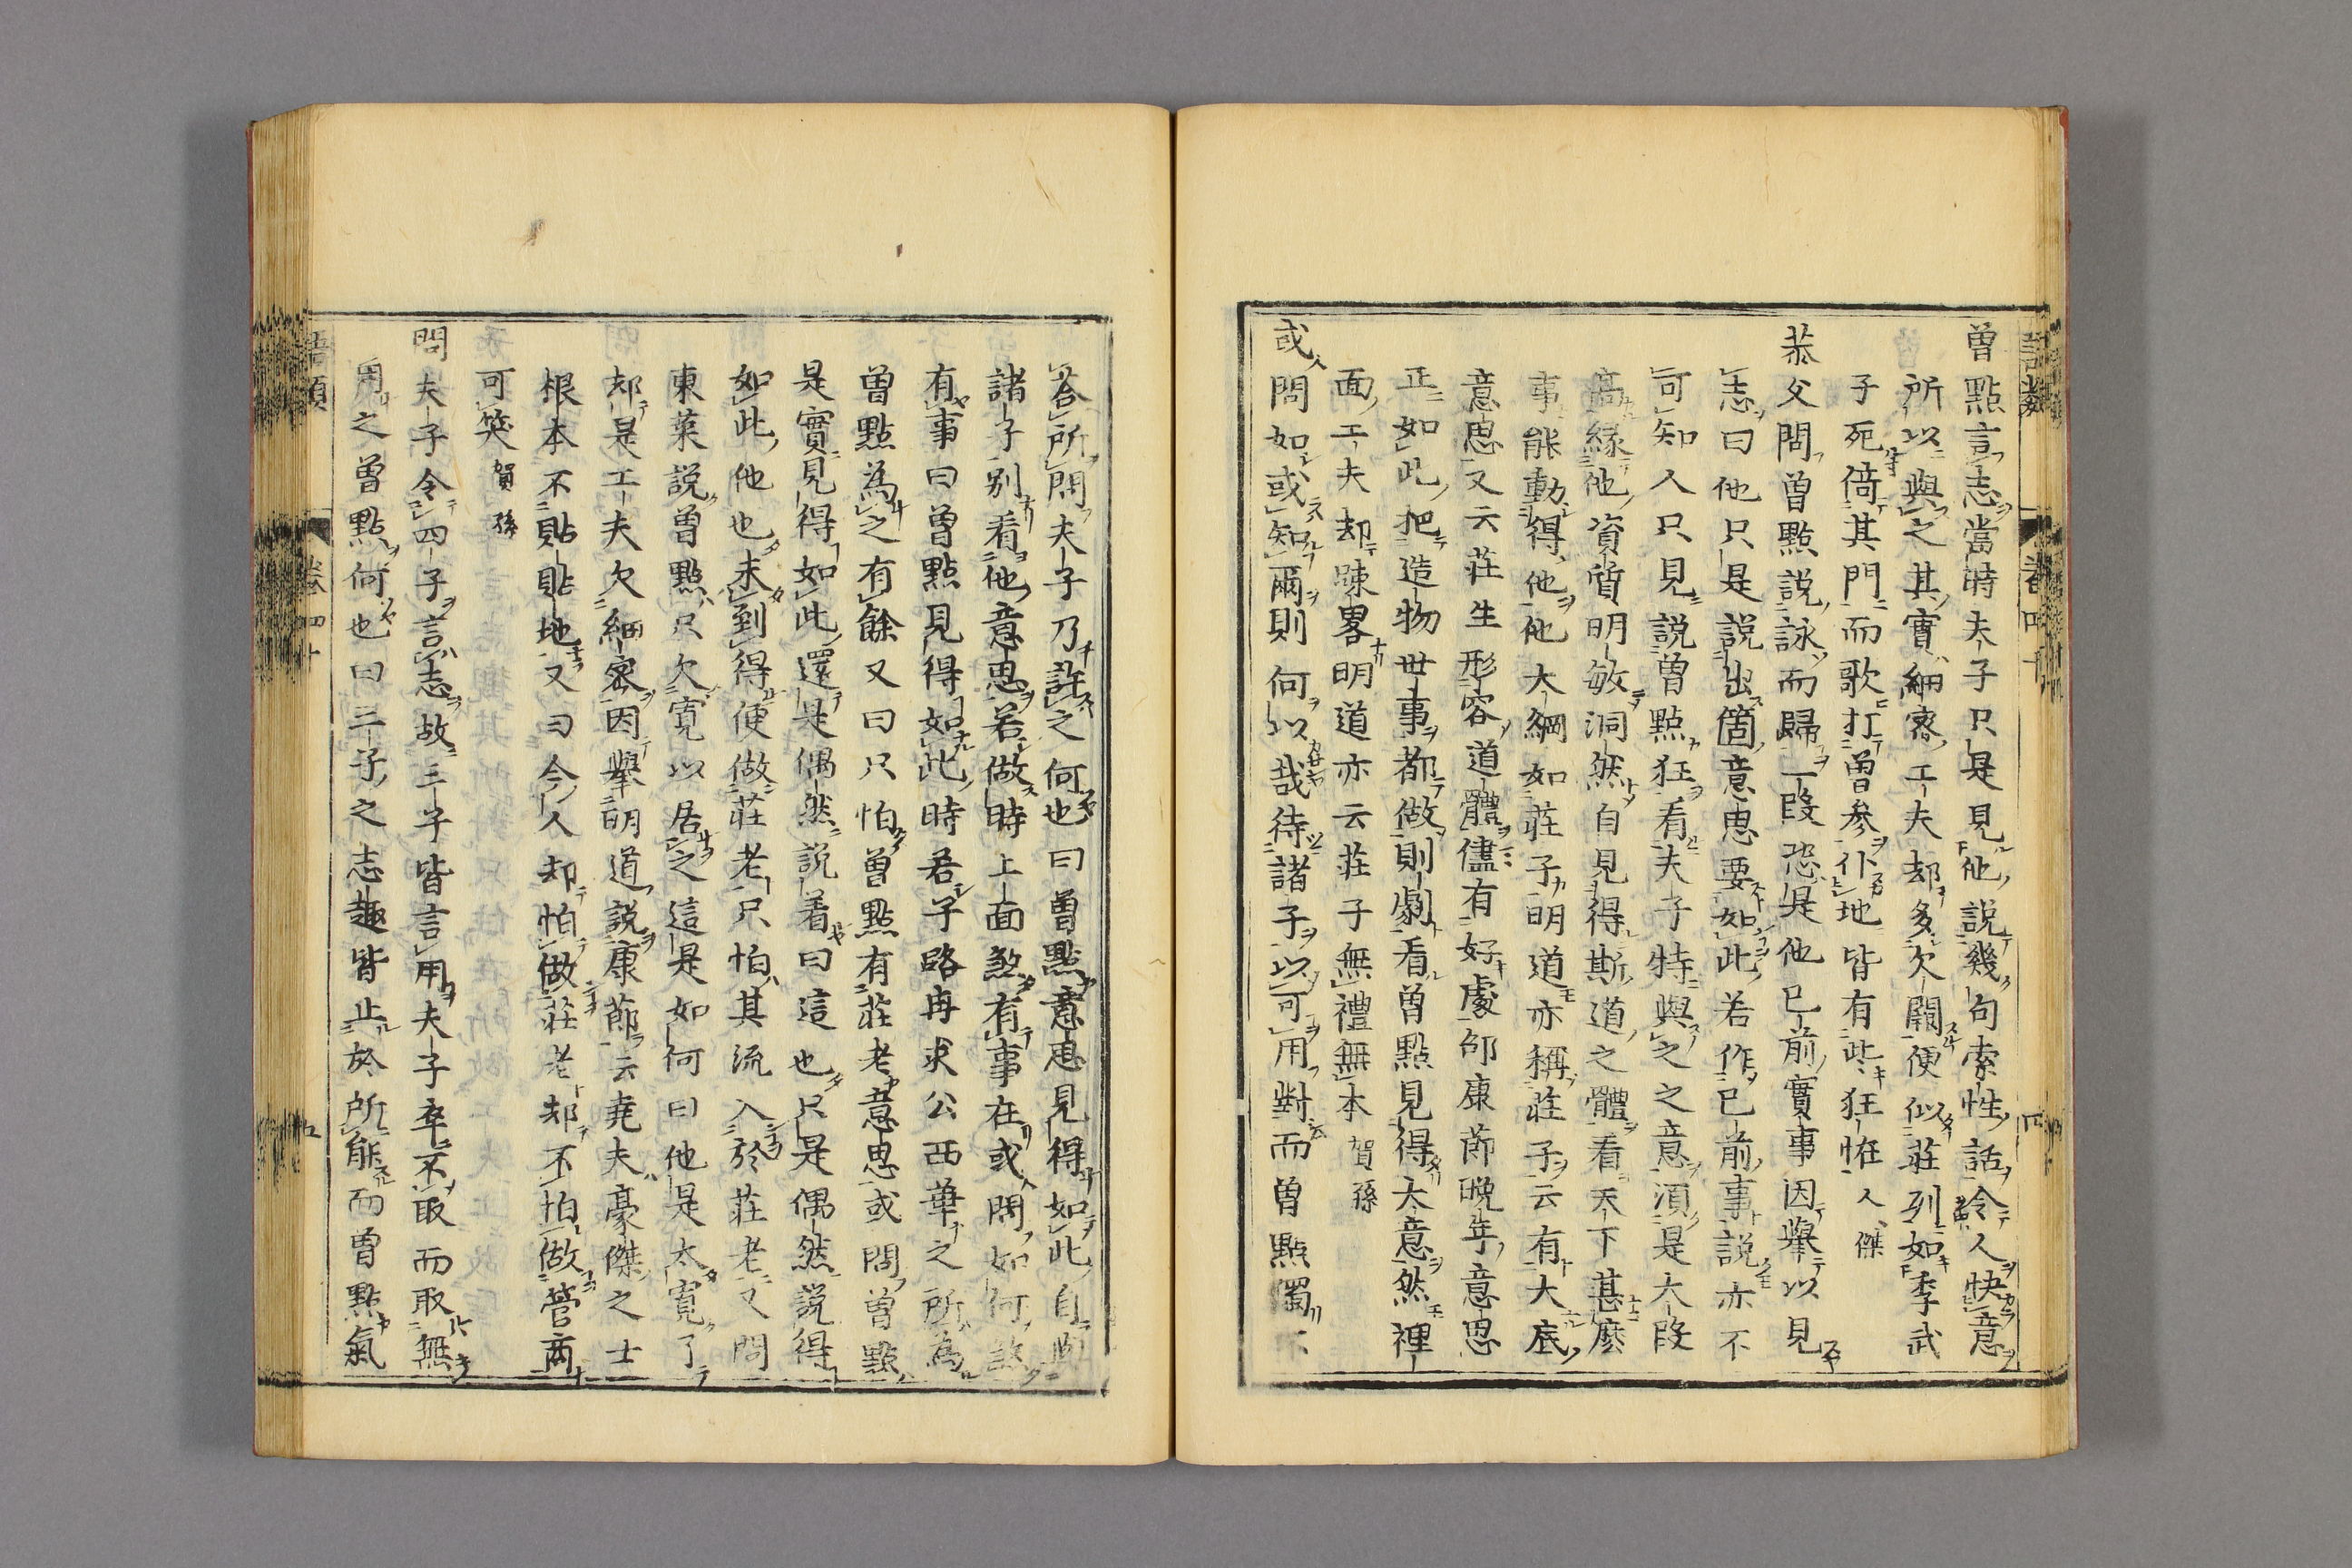 曽點言志當時夫子只是見他說幾句索性話令人快意
所以與之其實細宻工夫却多欠闕便似莊列如季武
子死倚其門而歌打曽参仆地皆有些狂怪 人傑
恭父問曽點說詠而歸一段恐是他已前實事因舉以見
志曰他只是說出箇意思要如此若作已前事說亦不
可知人只見說曽點狂看夫子特與之之意須是大段
髙縁他資質明敏洞然自見得斯道之體看天下甚麽
事能動得他他大綱如莊子明道亦稱莊子云有大底
意思又云莊生形容道體儘有好處邵康莭晩年意思
正如此把造物世事都做則劇看曽點見得大意然裡
面工夫却踈畧明道亦云莊子無禮無本 賀孫
或問如或知爾則何以哉待諸子以可用對而曽點獨不
答所問夫子乃許之何也曰曽點意思見得如此自與
諸子别看他意思若做時上面煞有事在或問如何煞
有事曰曽點見得如此時若子路冉求公西華之所為
曽點為之有餘又曰只怕曽點有莊老意思或問曽點
是實見得如此還是偶然說着曰這也只是偶然說得
如此他也未到得便做莊老只怕其流入於莊老又問
東莱說曽點只欠寛以居之這是如何曰他是太寛了
却是工夫欠細宻因舉明道說康莭云堯夫豪傑之士
根本不貼貼地又曰今人却怕做莊老却不怕做管商
可笑 賀孫
問夫子令四子言志故三子皆言用夫子卒不取而取無
用之曽點何也曰三子之志趣皆止於所能而曽點氣
語類 卷四十